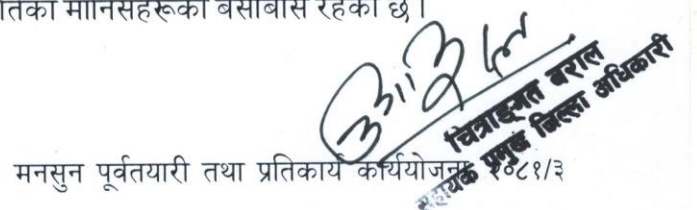 तिका मानिसहरूको बसोबास रहेको छ।
चित्राङ्मत बराल
सहायक प्रमुख जिल्ला अधिकारी
मनसुन पूर्वतयारी तथा प्रतिकार्य कार्ययोजना २०८१/३